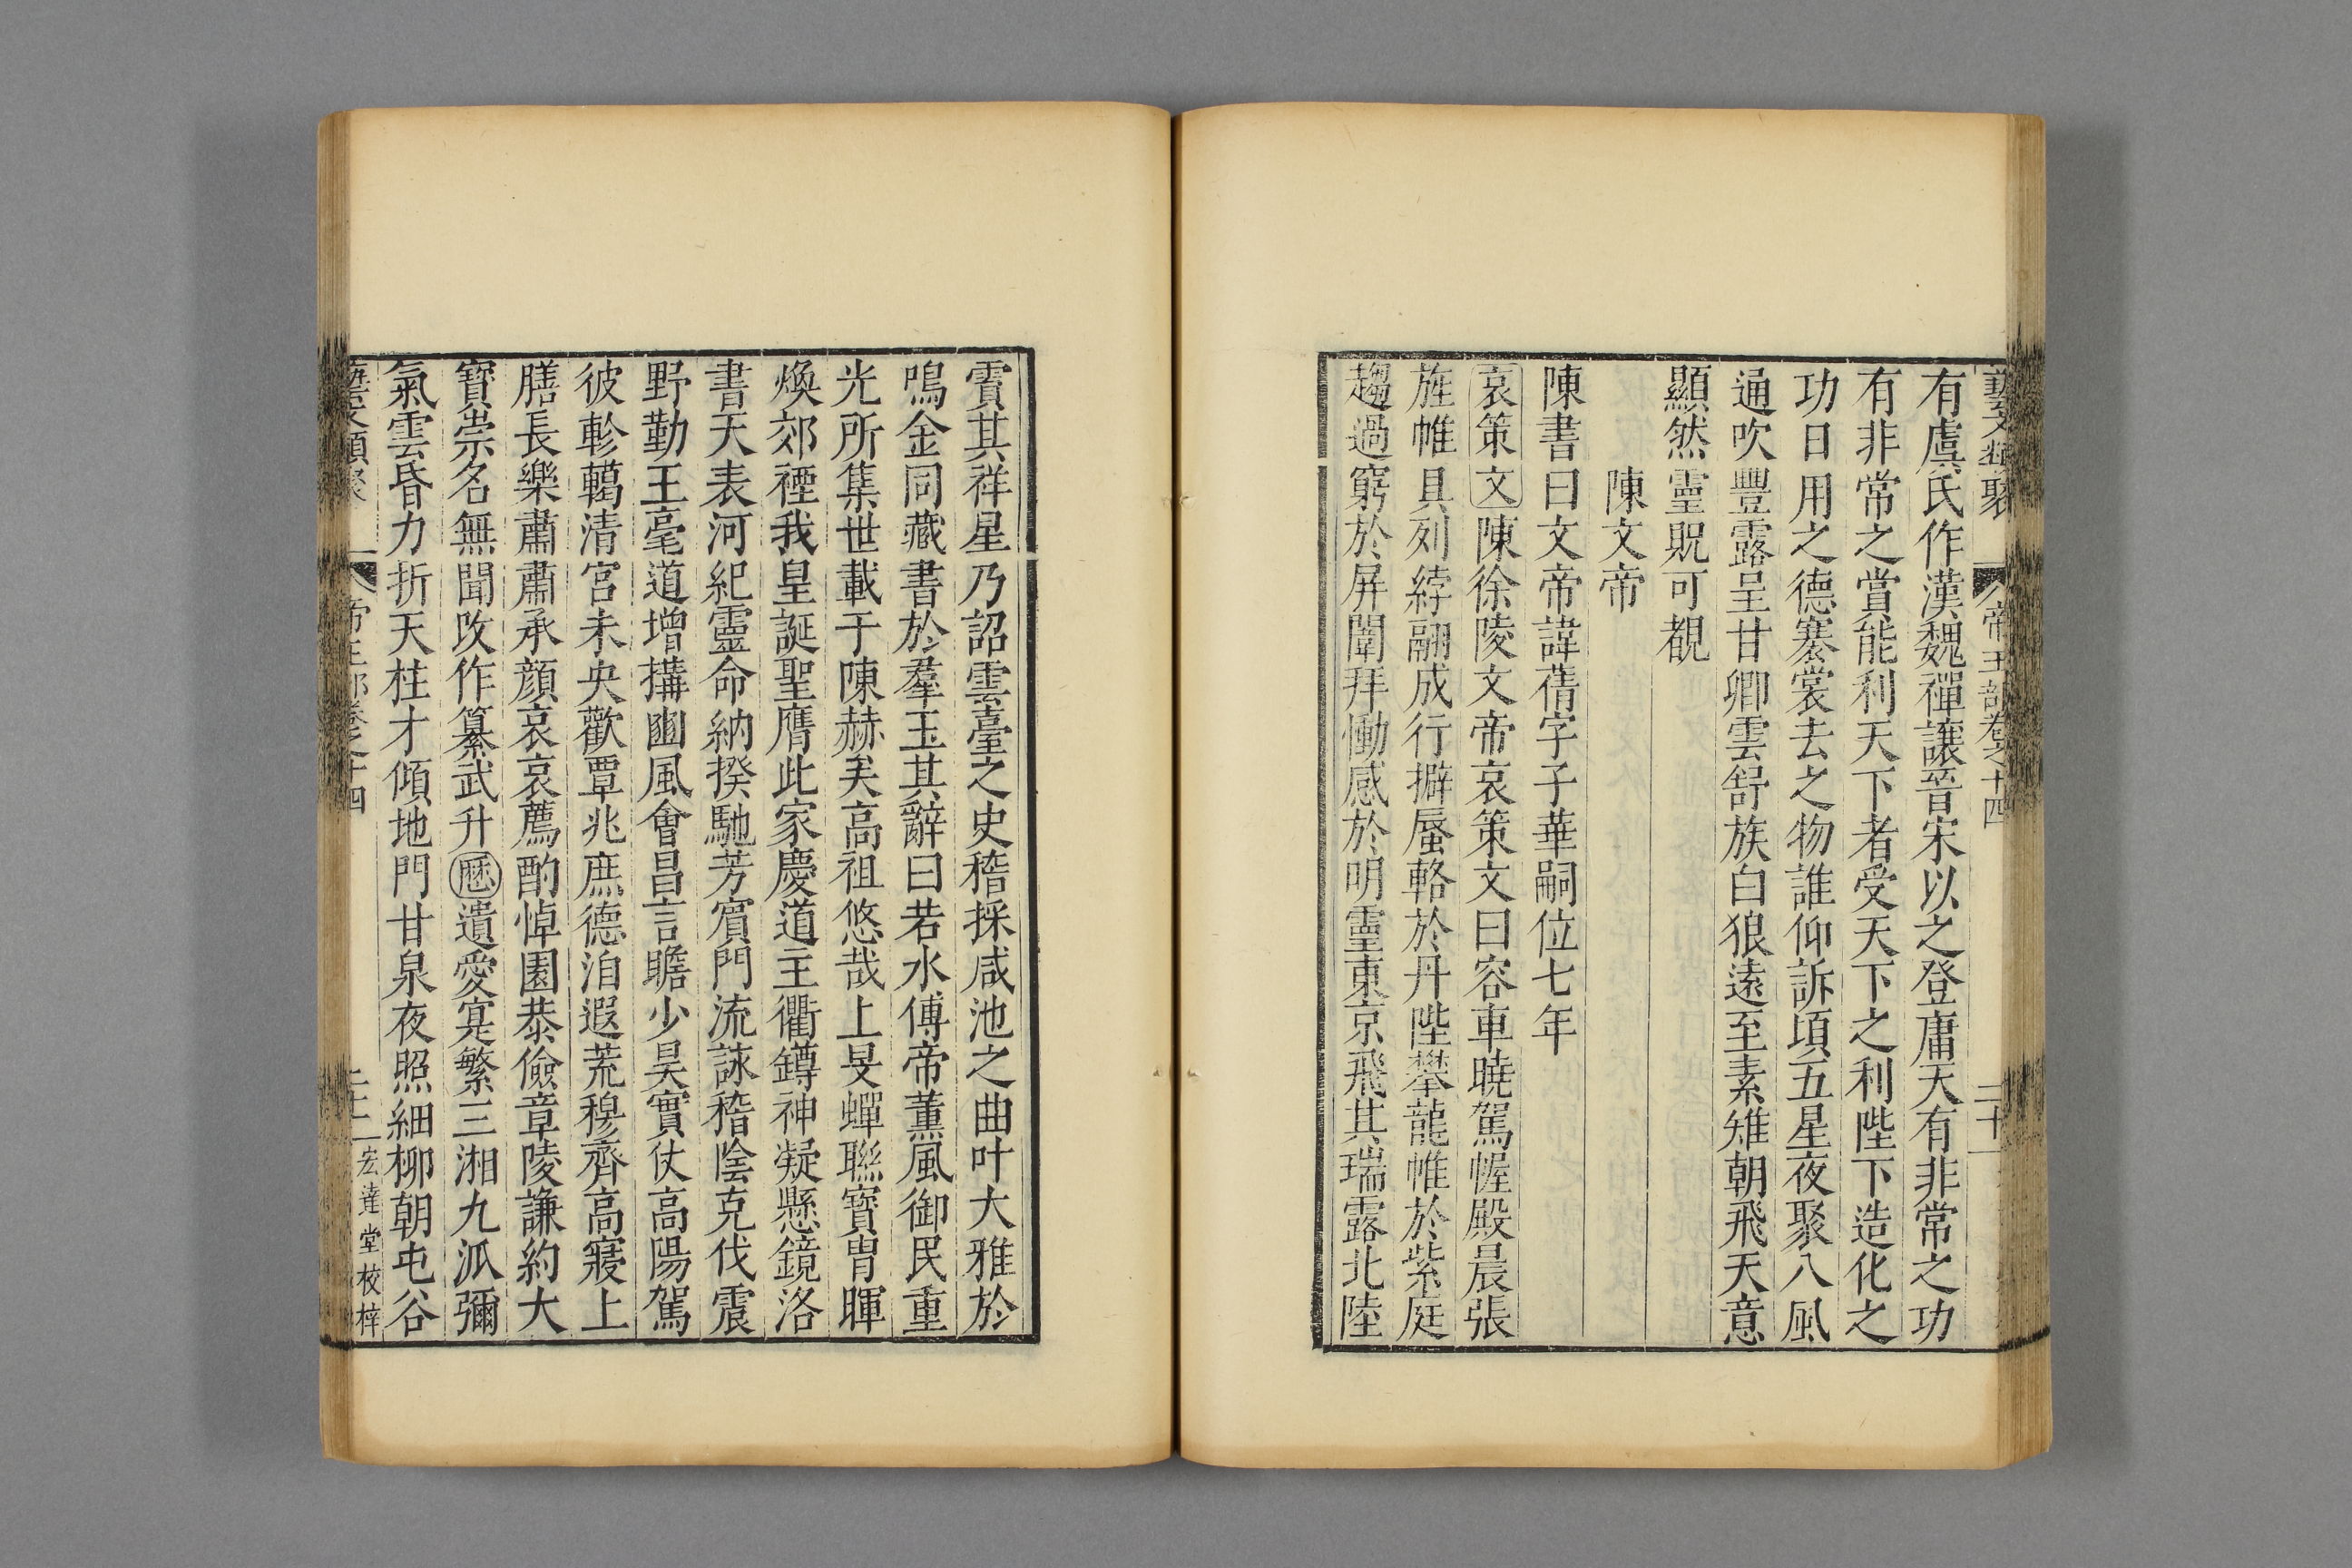 藝文類聚 帝王部卷之十四 二十一
有虞氏作漢魏禪讓晉宋以之登庸天有非常之功
有非常之賞能利天下者受天下之利陛下造化之
功日用之德褰裳去之物誰仰訴頃五星夜聚八風
通吹豐露呈甘卿雲舒族白狼遠至素雉朝飛天意
顯然靈貺可覩
陳文帝
陳書曰文帝諱蒨字子華嗣位七年
哀策文陳徐陵文帝哀策文曰容車曉駕幄殿晨張
旌帷具列綍翮成行擗蜃輅於丹陛攀龍帷於紫庭
趨過窮於屏闈拜慟感於明靈東京飛其瑞露北陸
賁其祥星乃詔雲臺之史稽採咸池之曲叶大雅於
鳴金同藏書於羣玉其辭曰若水傳帝薰風御民重
光所集世載于陳赫矣高祖悠哉上旻蟬聯寶冑暉
煥郊禋我皇誕聖膺此家慶道王衢罇神凝懸鏡洛
書天表河紀靈命納揆馳芳賓門流詠稽陰克伐震
野勤王毫道增搆豳風會昌言瞻少昊實仗高陽駕
彼軫轕清宮未央歡覃兆庶德洎遐荒穆齊高寢上
膳長樂肅肅承顔哀哀薦酌悼園恭儉章陵謙約大
寶崇名無聞改作纂武升曆遺愛寔繁三湘九派彌
氣雲昏力折天柱才傾地門甘泉夜照細柳朝屯谷
藝文類聚 帝王部卷之十四 二十一 宏達堂校梓